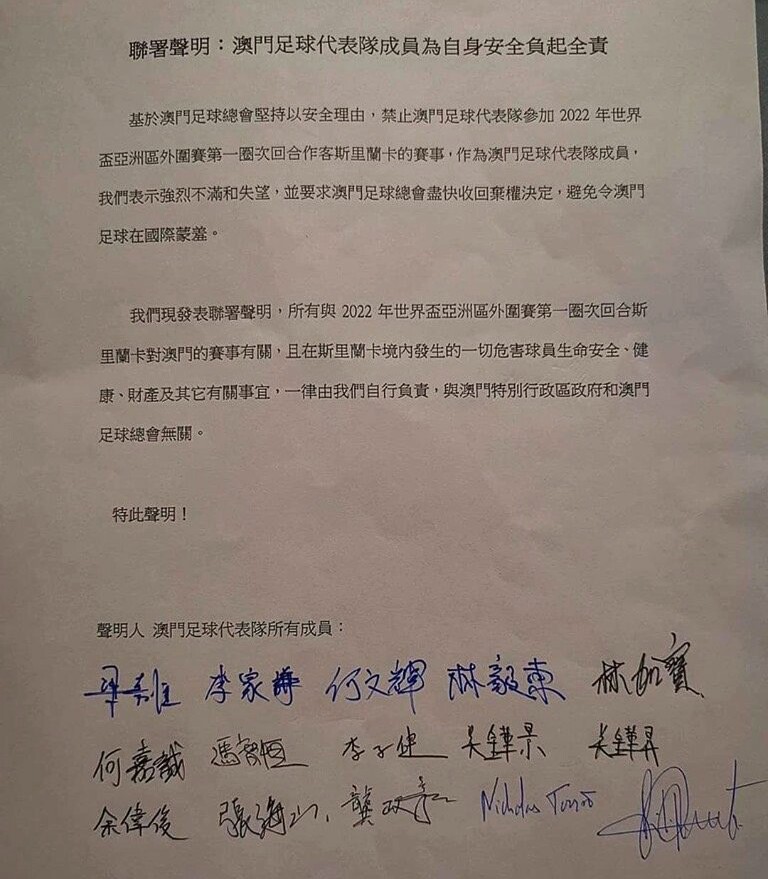 聯署聲明：澳門足球代表隊成員為自身安全負起全責
基於澳門足球總會堅持以安全理由，禁止澳門足球代表隊參加 2022 年世界
盃亞洲區外圍賽第一圈次回合作客斯里蘭卡的賽事，作為澳門足球代表隊成員，
我們表示強烈不滿和失望，並要求澳門足球總會盡快收回棄權決定，避免令澳門
足球在國際蒙羞。
我們現發表聯署聲明，所有與 2022 年世界盃亞洲區外圍賽第一圈次回合斯
里蘭卡對澳門的賽事有關，且在斯里蘭卡境內發生的一切危害球員生命安全、健
康、財產及其它有關事宜，一律由我們自行負責，與澳門特別行政區政府和澳門
足球總會無關。
特此聲明！
聲明人 澳門足球代表隊所有成員：
李家 何文輝 林毅東 林加寶
何嘉誠 李子健 吳鏵昇
余偉俊 張海 龔 Nicholas